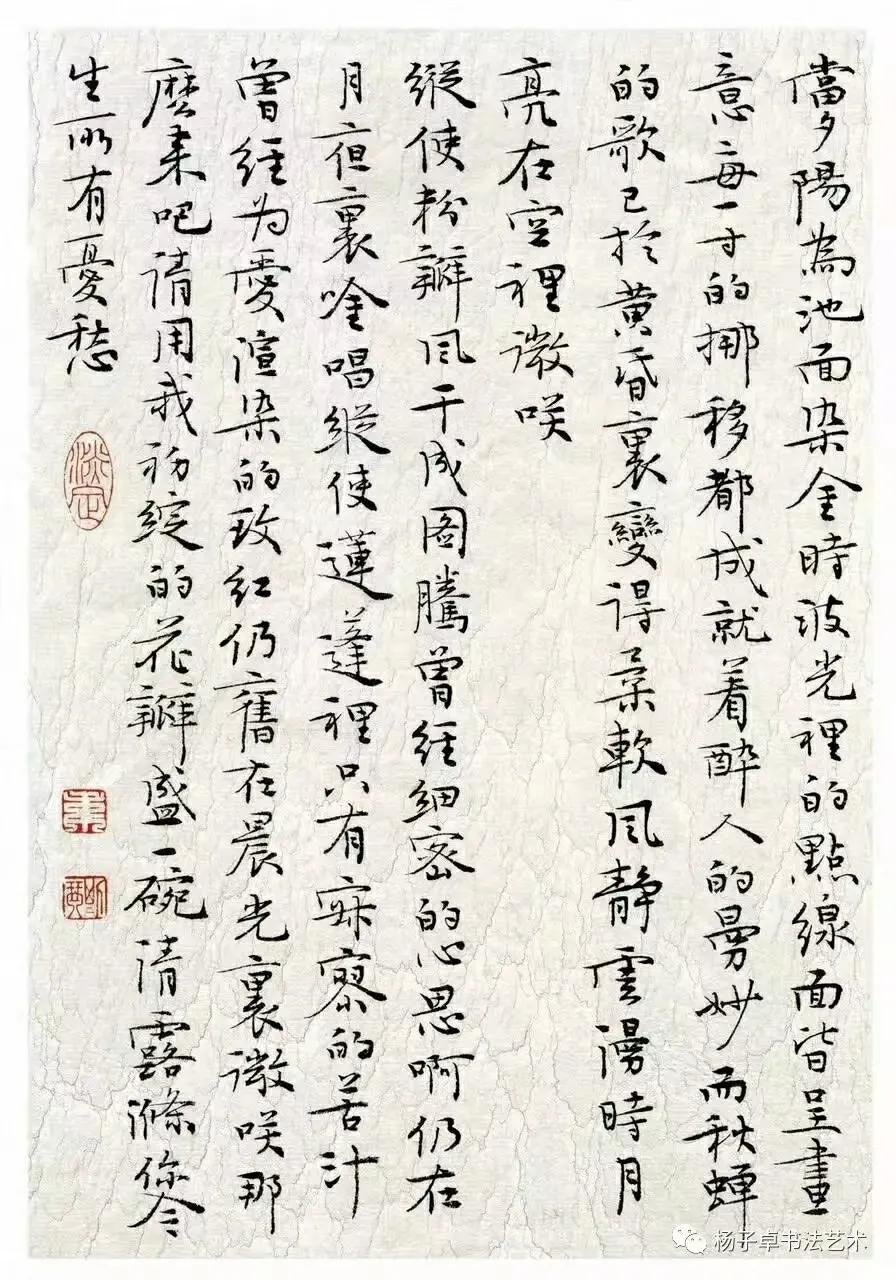 當夕陽為池面染金時波光裡的點線面皆呈畫
意每一寸的挪移都成就着醉人的曼妙而秋蟬
的歌已於黃昏裏變得柔軟風靜雲漫時月
亮在空裡微笑
縱使粉瓣風干成图騰曾经細密的心思啊仍在
月夜裏唫唱縱使蓮蓬裡只有寂寥的苦汁
曾经为愛渲染的玫红仍舊在晨光裏微笑那
麼来吧請用我初綻的花瓣盛一碗清露滌你今
生所有憂愁
杨子卓书法艺术